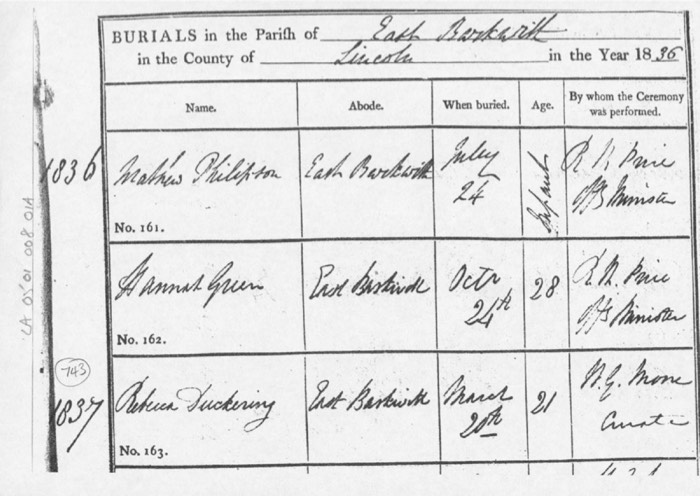 BURIALS in the Parish of East Barkwith
in the County of Lincoln in the Year 1836
Name. Abode. When buried. Age. By whom the Ceremony was performed.
1836
Mathew Philipson East Barkwith July 24 Infant R. N. Price Offg Minister
No. 161.
Hannah Green East Barkwith Octr 24th 28 R. N. Price Offg Minister
No. 162.
743
1837
Rebecca Duckering East Barkwith March 20th 21 Curate
No. 163.